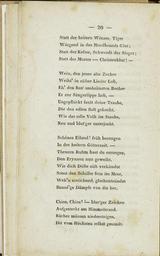 — 20 —
Statt der heitern Winzer, Tiger
Würgend in des Hindlands Gau;
Statt der Kelter, Schwerdt der Sieger;
Statt des Mostes — Christenblut! —
Wein, den jener alte Zecher
Weiht' in süßer Lieder Lust,
Eh' den fast umkränzten Becher
Er zur Sängerlippe ließ, —
Ungepflückt fault deine Traube,
Die den edlen Saft gekocht,
Wie das edle Volk im Staube,
Neu und blutger unterjocht.
Schönes Eiland! früh bezwungen
In der heitern Götterzeit. —
Theuren Ruhm hast du errungen,
Den Erynnen nun geweiht.
Wie dich Düfte süß verkündet
Sonst den Schiffer fern im Meer,
Weh'n ersteckend, gluthentzündet
Brand'ge Dämpfe von dir her.
Chios, Chios! — blutges Zeichen
Aufgesteckt am Himmelsrand,
Sicher müssen niedersteigen,
Die vom Höchsten selbst gesandt